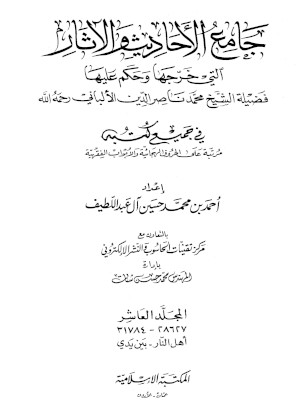 جامع الأحاديث والآثار
التي خرجها وحكم عليها
فضيلة الشيخ محمد ناصر الدين الألباني رحمه الله
في جميع كتبه
مرتبة على الحروف الهجائية والأبواب الفقهية
إعداد
أحمد بن محمد حسين آل عبد اللطيف
بالتعاون مع
مركز تقنيات الحاسوب في النشر الإلكتروني
بإدارة
المهندس محمد حسين
المجلد العاشر
٢٨٦٢٧ - ٣١٧٨٤
أهل النار - بين يدي
المكتبة الإسلامية
عمان - الأردن